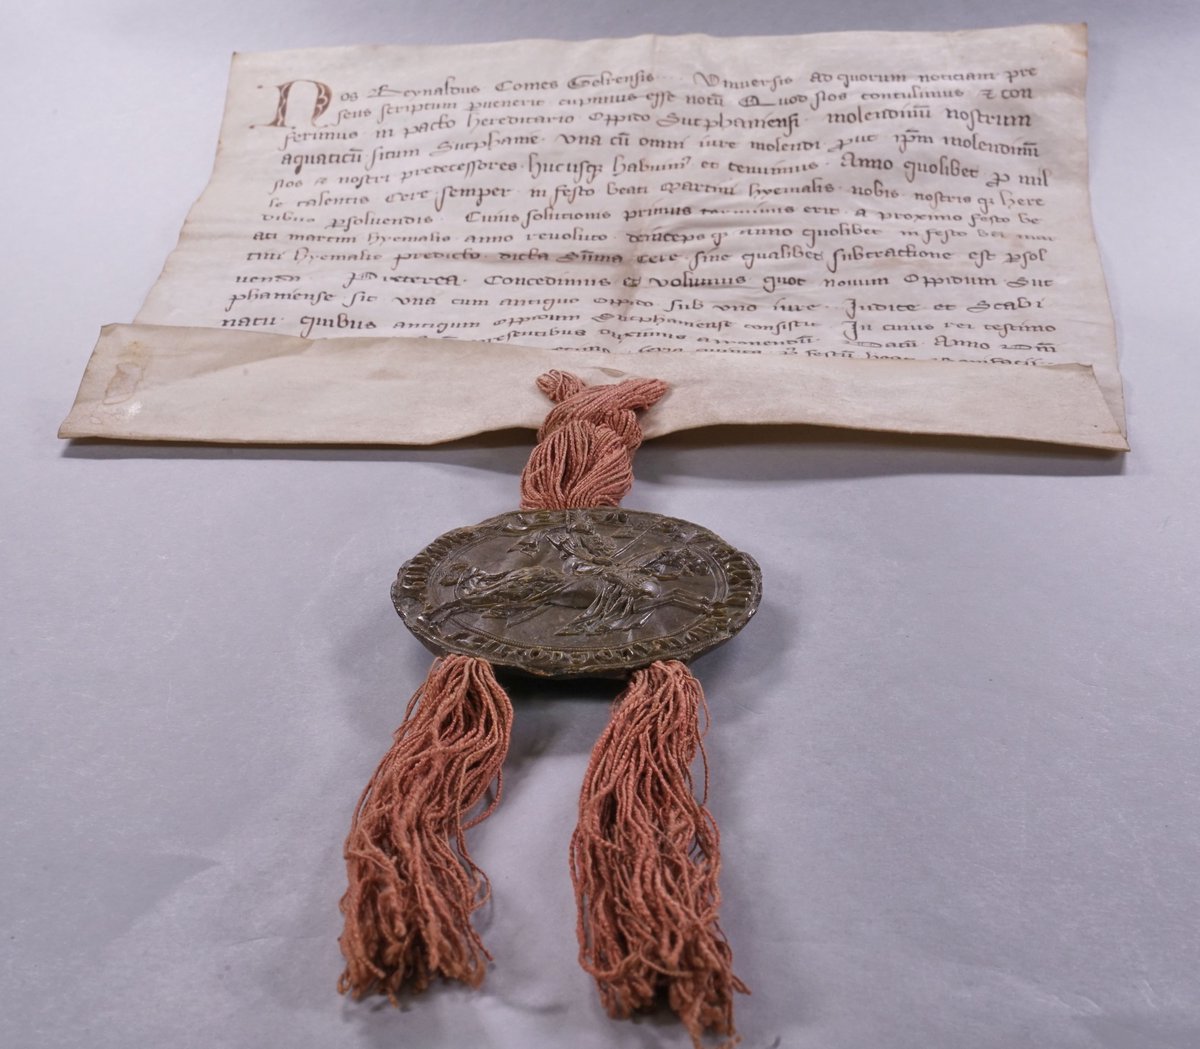 Nos Reynaldus Comes Gelrensis... Vniuersis ad quorum noticiam pre
sens scriptum puenerit cupimus esse notū Quod nos contulimus & con
ferimus in pacto hereditario oppido Sutphaniensi molendinū nostrum
aquaticū situm Sutphanie una cū omni iure molendi put ipm molendinū
nos & nostri predecessores hucusq habuim' et tenuimus Anno quolibet p mil
le talentis Cere semper in festo beati Martini hyemalis nobis nostris q here
dibus psoluendis Cuius solutionis primus terminus erit a proximo festo be
ati martini hyemalis anno reuoluto deinceps q anno quolibet in festo bei mar
tini hyemalis predicto dicta Sūma Cere sine qualibet subtractione est psol
uenda Preterea Concedimus et volumus quot nouum oppidum Sut
phaniense sit una cum antiquo oppido sub uno iure Judice et Scabi
natu quibus antiqum oppidum Sutphaniense consistit In cuius rei testimo
presentibus duximus apponendū Datū Anno Dm̄
feria quinta festū